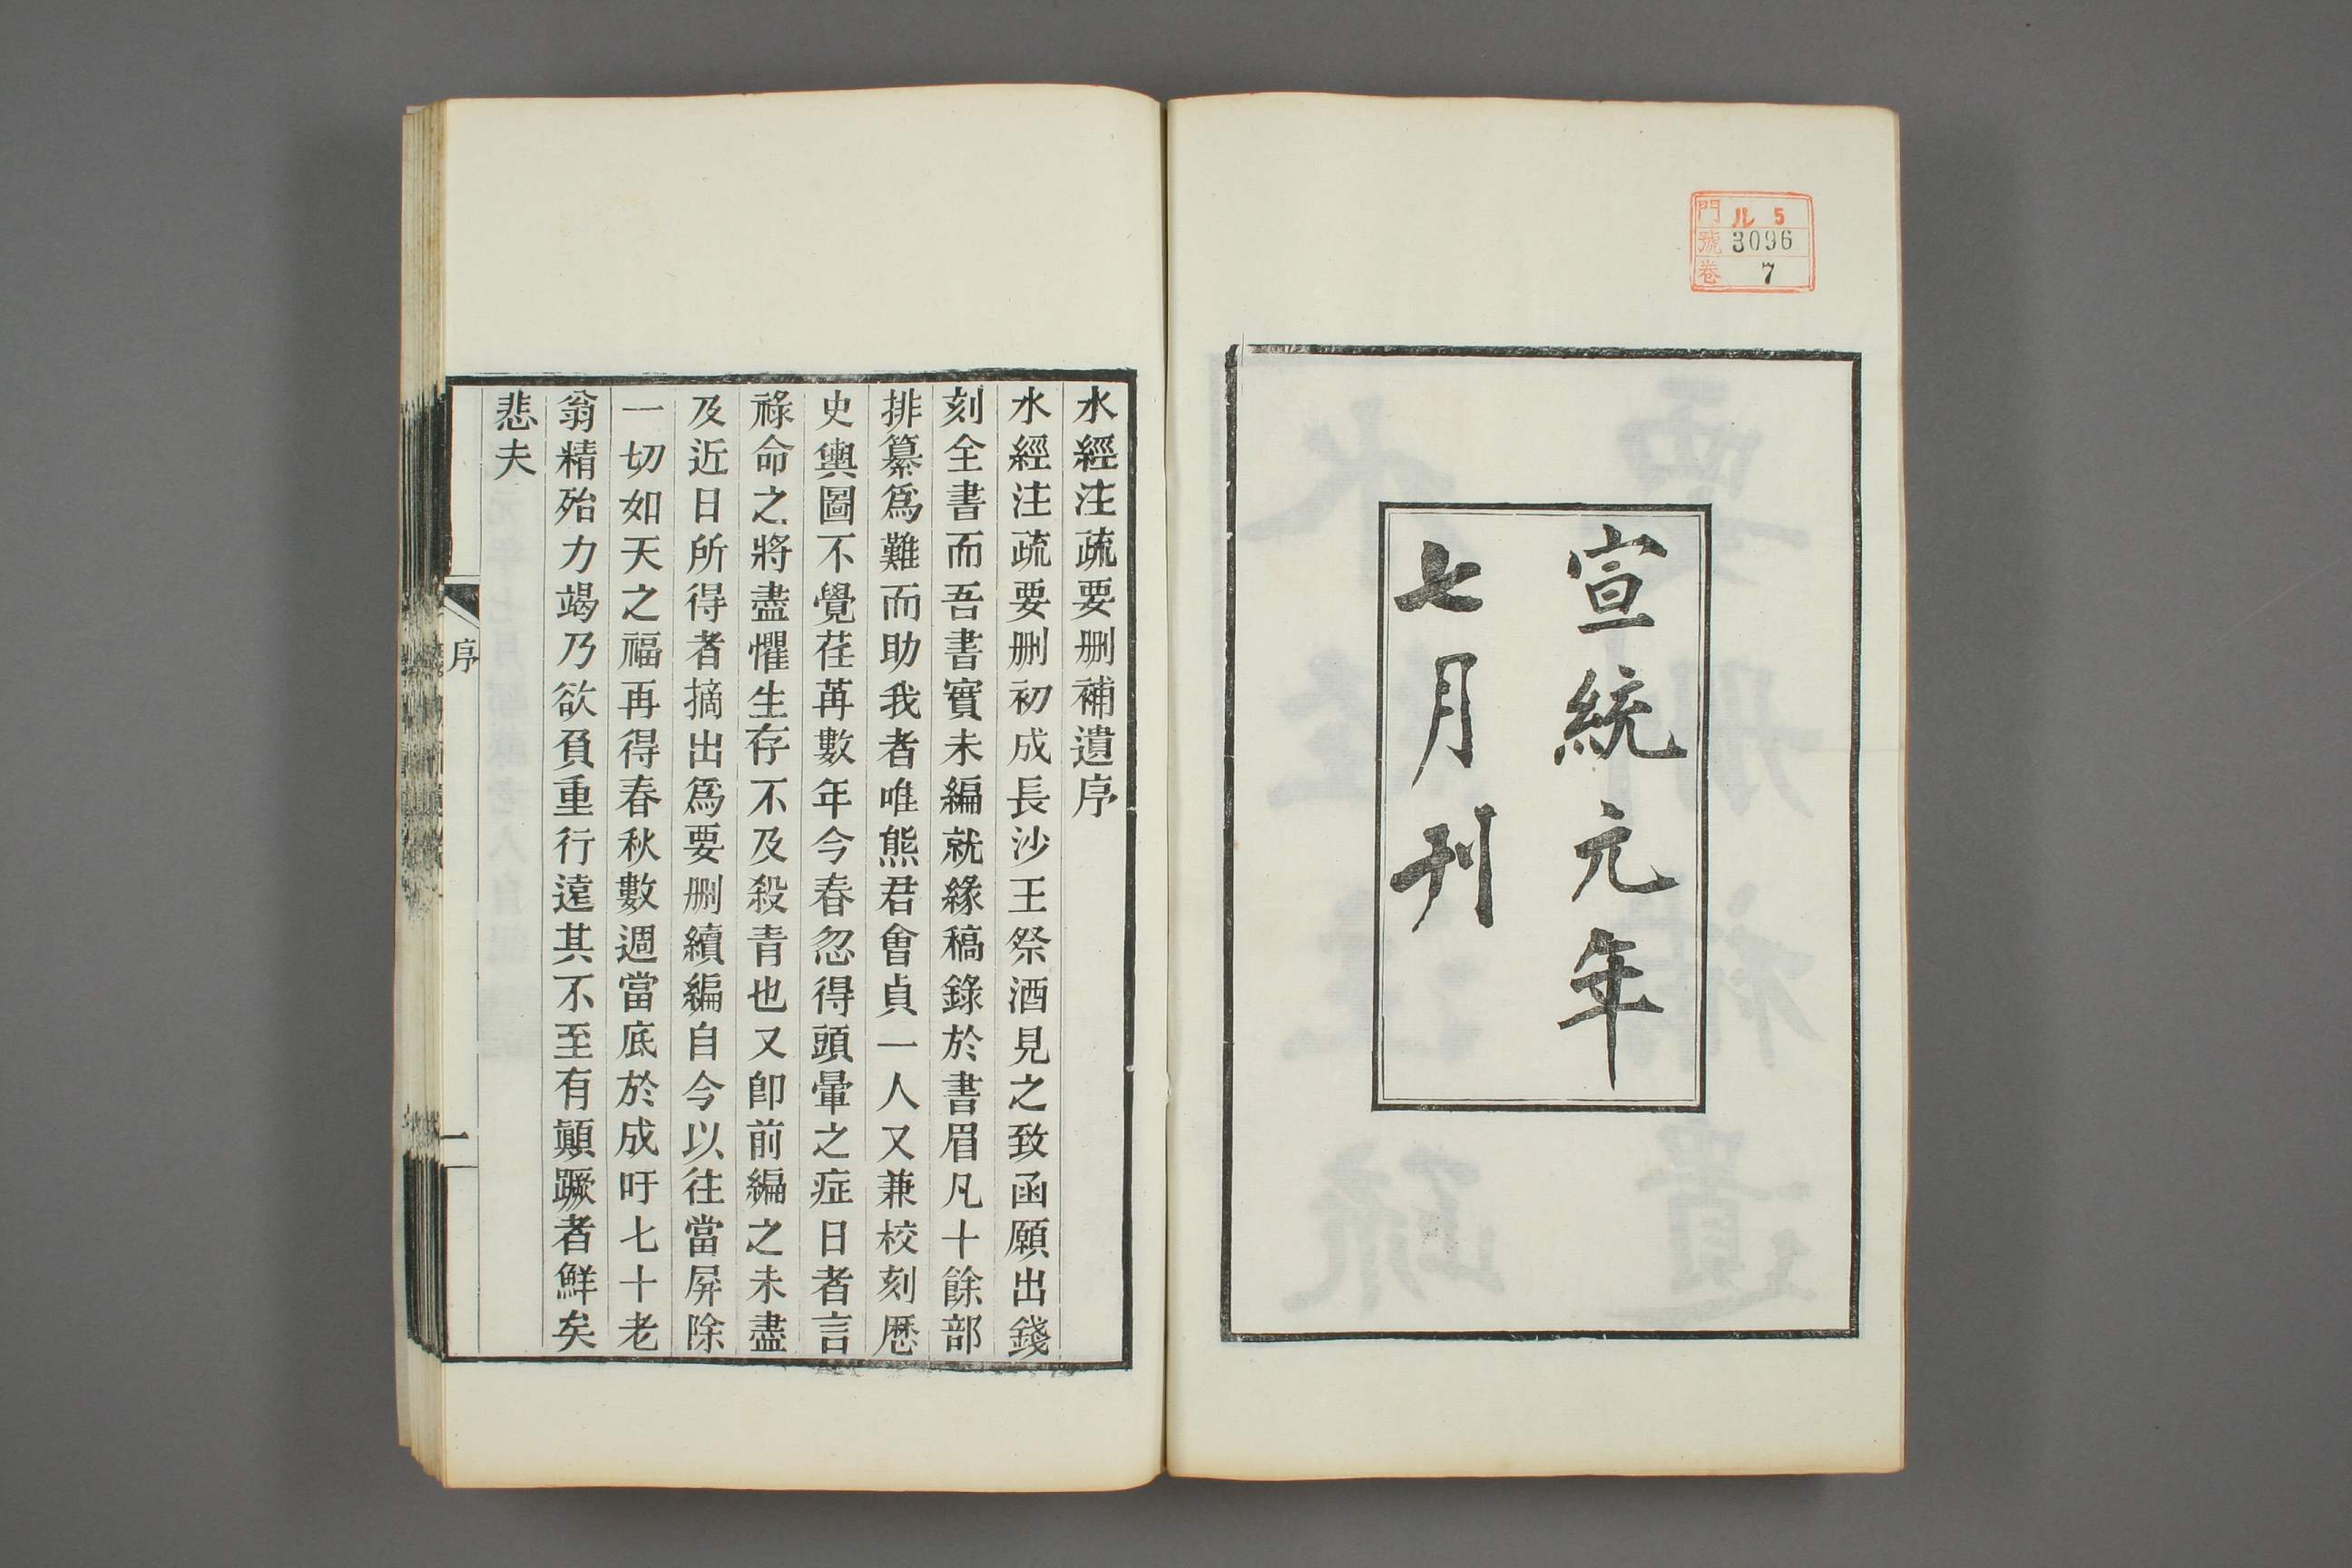 門 ル 5
號 3096
卷 7
宣統元年
七月刊
水經注疏要删補遺序
水經注疏要删初成長沙王祭酒見之致函願出錢
刻全書而吾書實未編就緣稿錄於書眉凡十餘部
排纂爲難而助我者唯熊君會貞一人又兼校刻歷
史輿圖不覺荏苒數年今春忽得頭暈之症日者言
祿命之將盡懼生存不及殺青也又卽前編之未盡
及近日所得者摘出爲要删續編自今以往當屏除
一切如天之福再得春秋數週當底於成吁七十老
翁精殆力竭乃欲負重行遠其不至有顚蹶者鮮矣
悲夫
序
一